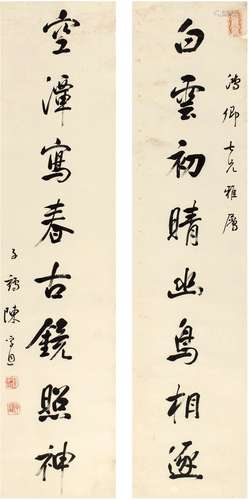 卿兄雅屬
白雲初晴幽鳥相逐
空潭寫春古鏡照神
子鶴陳孚恩